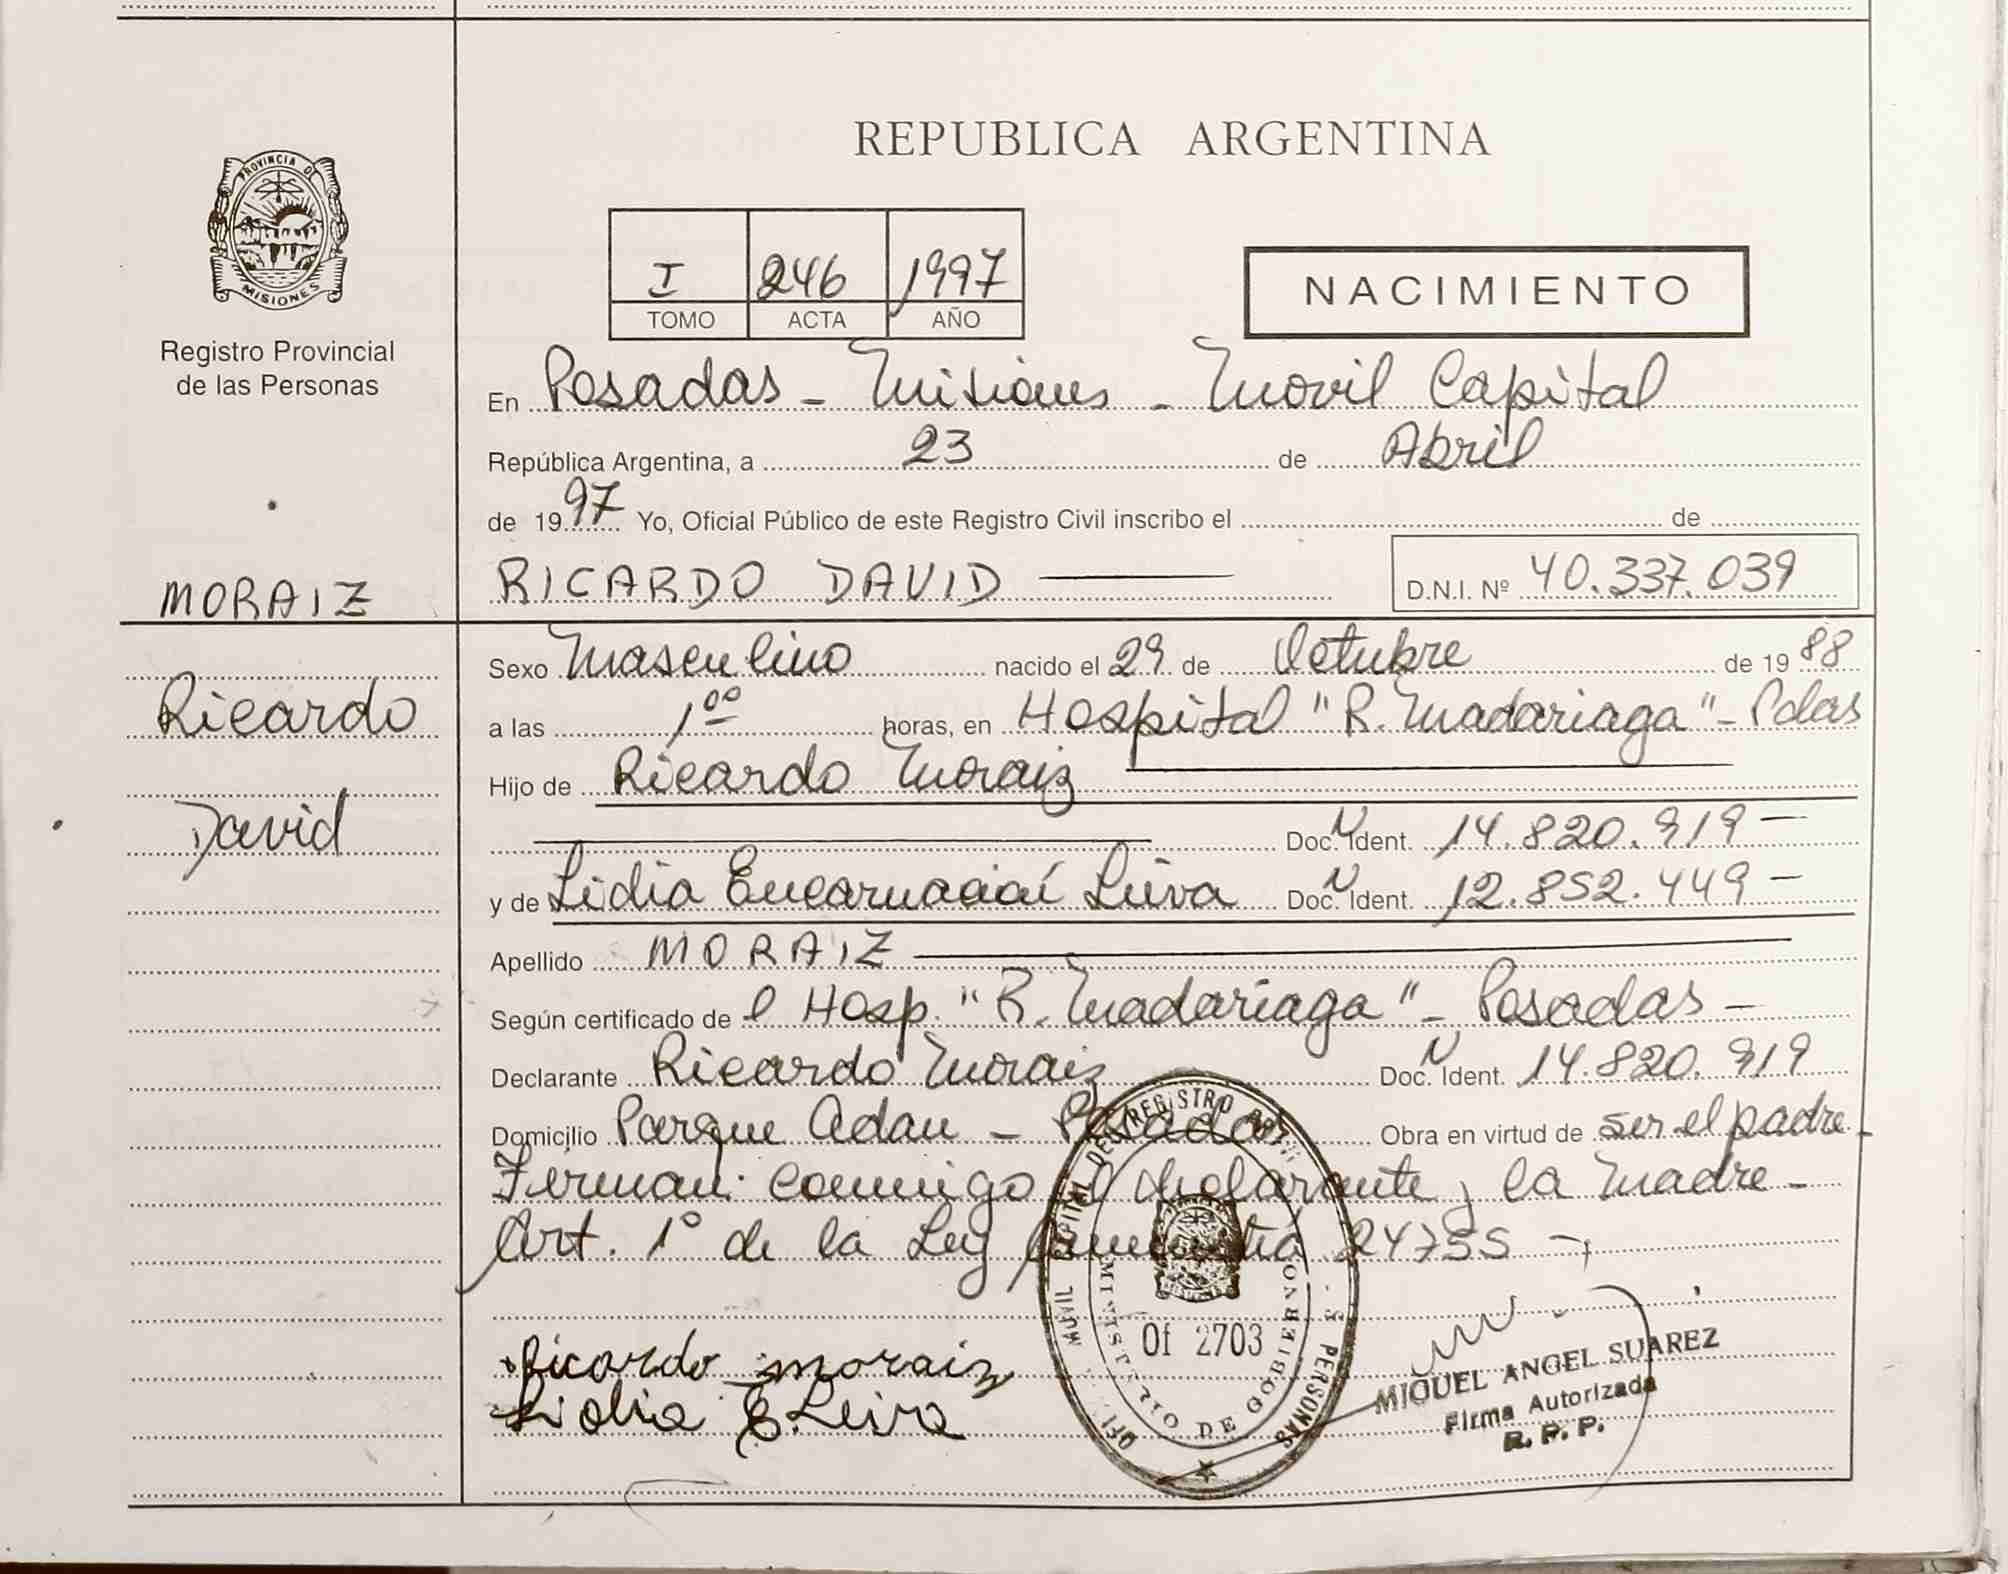 REPUBLICA ARGENTINA
PROVINCIA DE
MISIONES
Registro Provincial
de las Personas
I 246 1997
TOMO ACTA AÑO
NACIMIENTO
En Posadas - Misiones - Movil Capital
República Argentina, a 23 de Abril
de 1997 Yo, Oficial Público de este Registro Civil inscribo el de
MORAIZ
RICARDO DAVID D.N.I. Nº 40.337.039
Sexo Masculino nacido el 29 de Octubre de 1988
Ricardo
a las 1ºº horas, en Hospital "R. Madariaga" - Pdas
Hijo de Ricardo Moraiz
David
Doc. N Ident. 14.820.919 -
y de Lidia Leiva Doc. N Ident. 12.852.449 -
Apellido MORAIZ
Según certificado de l Hosp. "R. Madariaga" - Posadas -
Declarante Ricardo Moraiz Doc. N Ident. 14.820.919
Domicilio Parque Adam - Posadas Obra en virtud de ser el padre -
Firman: conmigo el declarante y la Madre -
Art. 1º de la Ley Amnistia 24755 -
Ricardo moraiz
Lidia E. Leiva
MOVIL CAPITAL DEL REGISTRO PERSONAS
MINISTERIO DE GOBIERNO
Of 2703
MIGUEL ANGEL SUAREZ
Firma Autorizada
R. P. P.